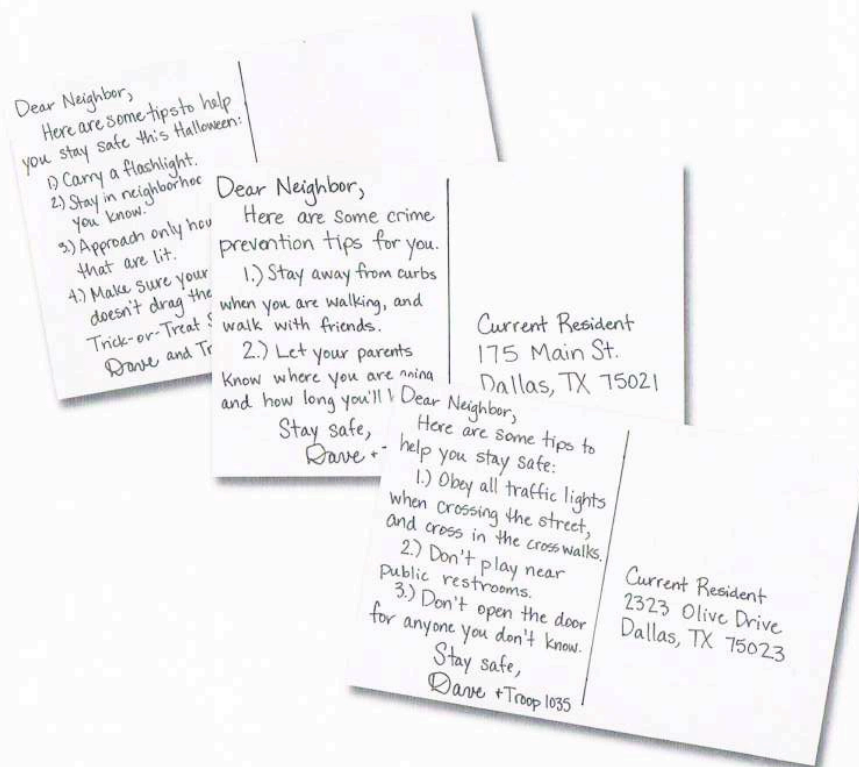 Dear Neighbor,
Here are some tips to help
you stay safe this Halloween:
1.) Carry a flashlight.
2.) Stay in
you know.
3.) Approach only
that are lit.
4.) Make sure your
doesn't drag
Trick-or-Treat
Dave and
Dear Neighbor,
Here are some crime
prevention tips for you.
1.) Stay away from curbs
when you are walking, and
walk with friends.
2.) Let your parents
know where you are going
and how long you'll
Stay safe,
Dave +
Current Resident
175 Main St.
Dallas, TX 75021
Dear Neighbor,
Here are some tips to
help you stay safe:
1.) Obey all traffic lights
when crossing the street,
and cross in the crosswalks.
2.) Don't play near
public restrooms.
3.) Don't open the door
for anyone you don't know.
Stay safe,
Dave + Troop 1035
Current Resident
2323 Olive Drive
Dallas, TX 75023